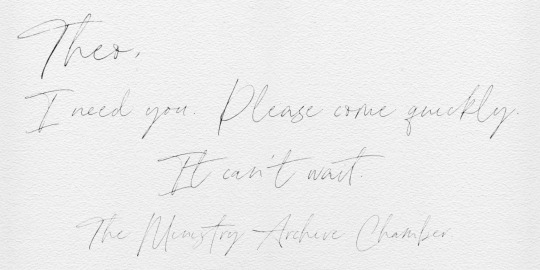 Theo,
I need you. Please come quickly.
It can't wait.
The Ministry Archive Chamber.